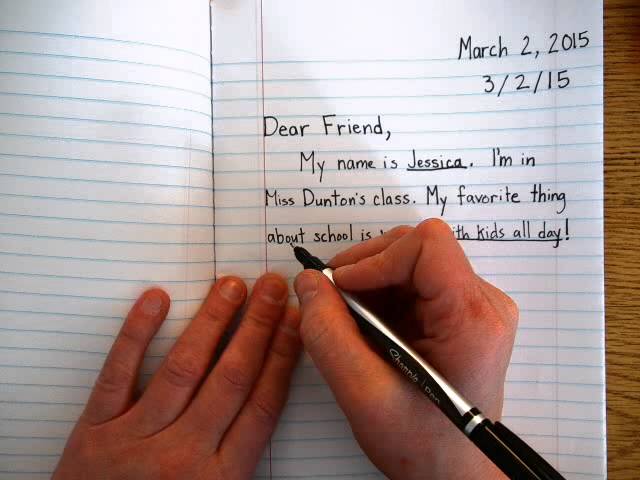 March 2, 2015
3/2/15
Dear Friend,
My name is Jessica. I'm in
Miss Dunton's class. My favorite thing
about school is with kids all day!
Sharpie Pen